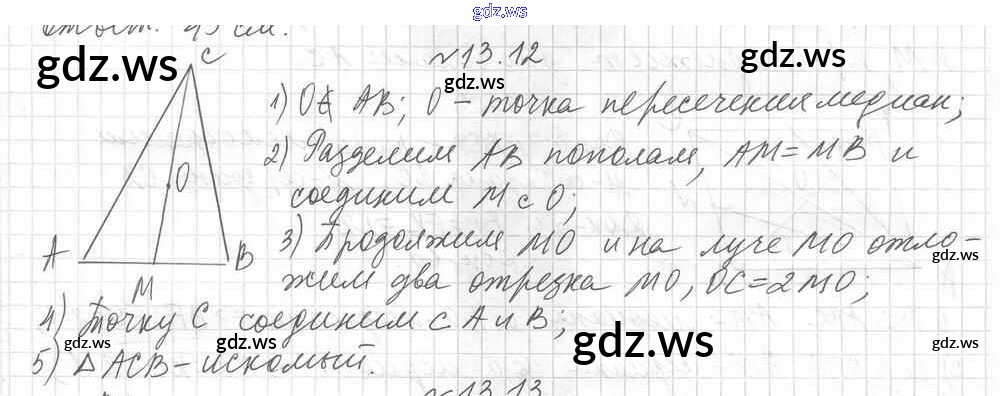 gdz.ws
Ответ: 45 см.
№13.12
gdz.ws
gdz.ws
gdz.ws
gdz.ws
C
O
A
B
M
1) O∉ AB; O – точка пересечения медиан;
2) Разделим AB пополам, AM = MB и
соединим M с O;
3) Продолжим MO и на луче MO отло-
жим два отрезка MO, OC = 2MO;
4) Точку C соединим с A и B;
5) △ ACB – искомый.
gdz.ws
gdz.ws
gdz.ws
№13.13